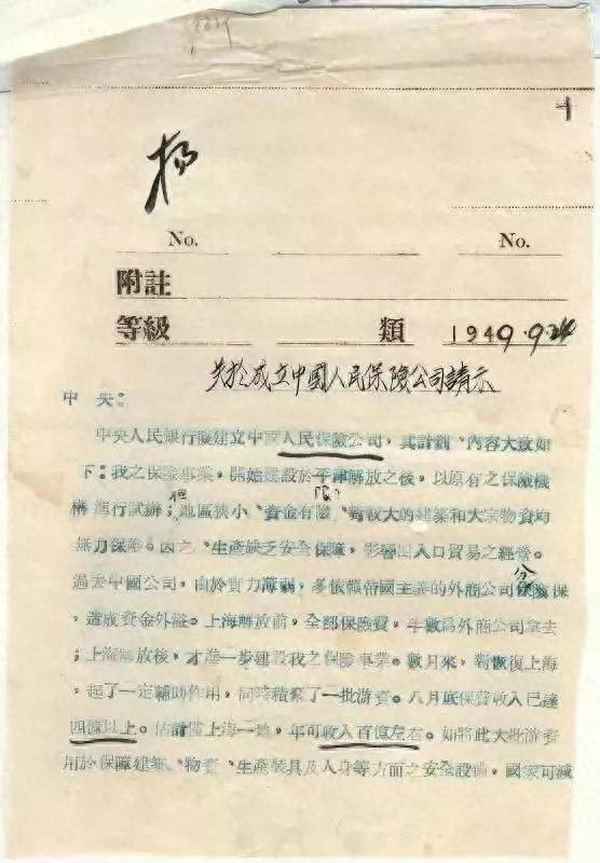 杨
No. No.
附註
等級 類 1949.9.24
关於成立中國人民保險公司請示
中央:
中央人民銀行擬建立中國人民保險公司,其計劃、內容大致如
下:我之保險事業,開始建設於平津解放之後,以原有之保險機
構進行試辦;但地區狹小、資金有險(限?)、對較大的建築和大宗物資均
無力保險。因之、生產缺乏安全保障,影響出入口貿易之經營。
過去中國公司,由於資力薄弱,多依賴帝國主義的外商公司分保
,造成資金外溢。上海解放前,全部保險費,半數爲外商公司拿去
;上海解放後,才進一步建設我之保險事業。數月來,對恢復上海
,起了一定輔助作用,同時積累了一批游資。八月底保費收入已達
四億以上。估計僅上海一地,年可收入百億左右。如將此大批游資
用於保障建築、物資、生產裝具及人身等方面之安全設備,國家可減